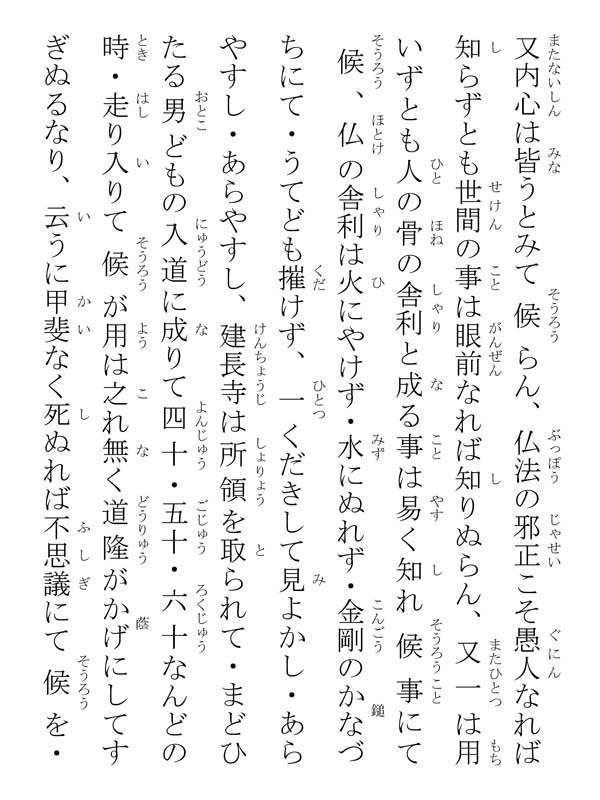 又内心は皆うとみて候らん、仏法の邪正こそ愚人なれば
知らずとも世間の事は眼前なれば知りぬらん、又一は用
いずとも人の骨の舎利と成る事は易く知れ候事にて
候、仏の舎利は火にやけず・水にぬれず・金剛のかなづ
ちにて・うてども摧けず、一くだきして見よかし・あら
やすし・あらやすし、建長寺は所領を取られて・まどひ
たる男どもの入道に成りて四十・五十・六十なんどの
時・走り入りて候が用は之れ無く道隆がかげにしてす
ぎぬるなり、云うに甲斐なく死ぬれば不思議にて候を・